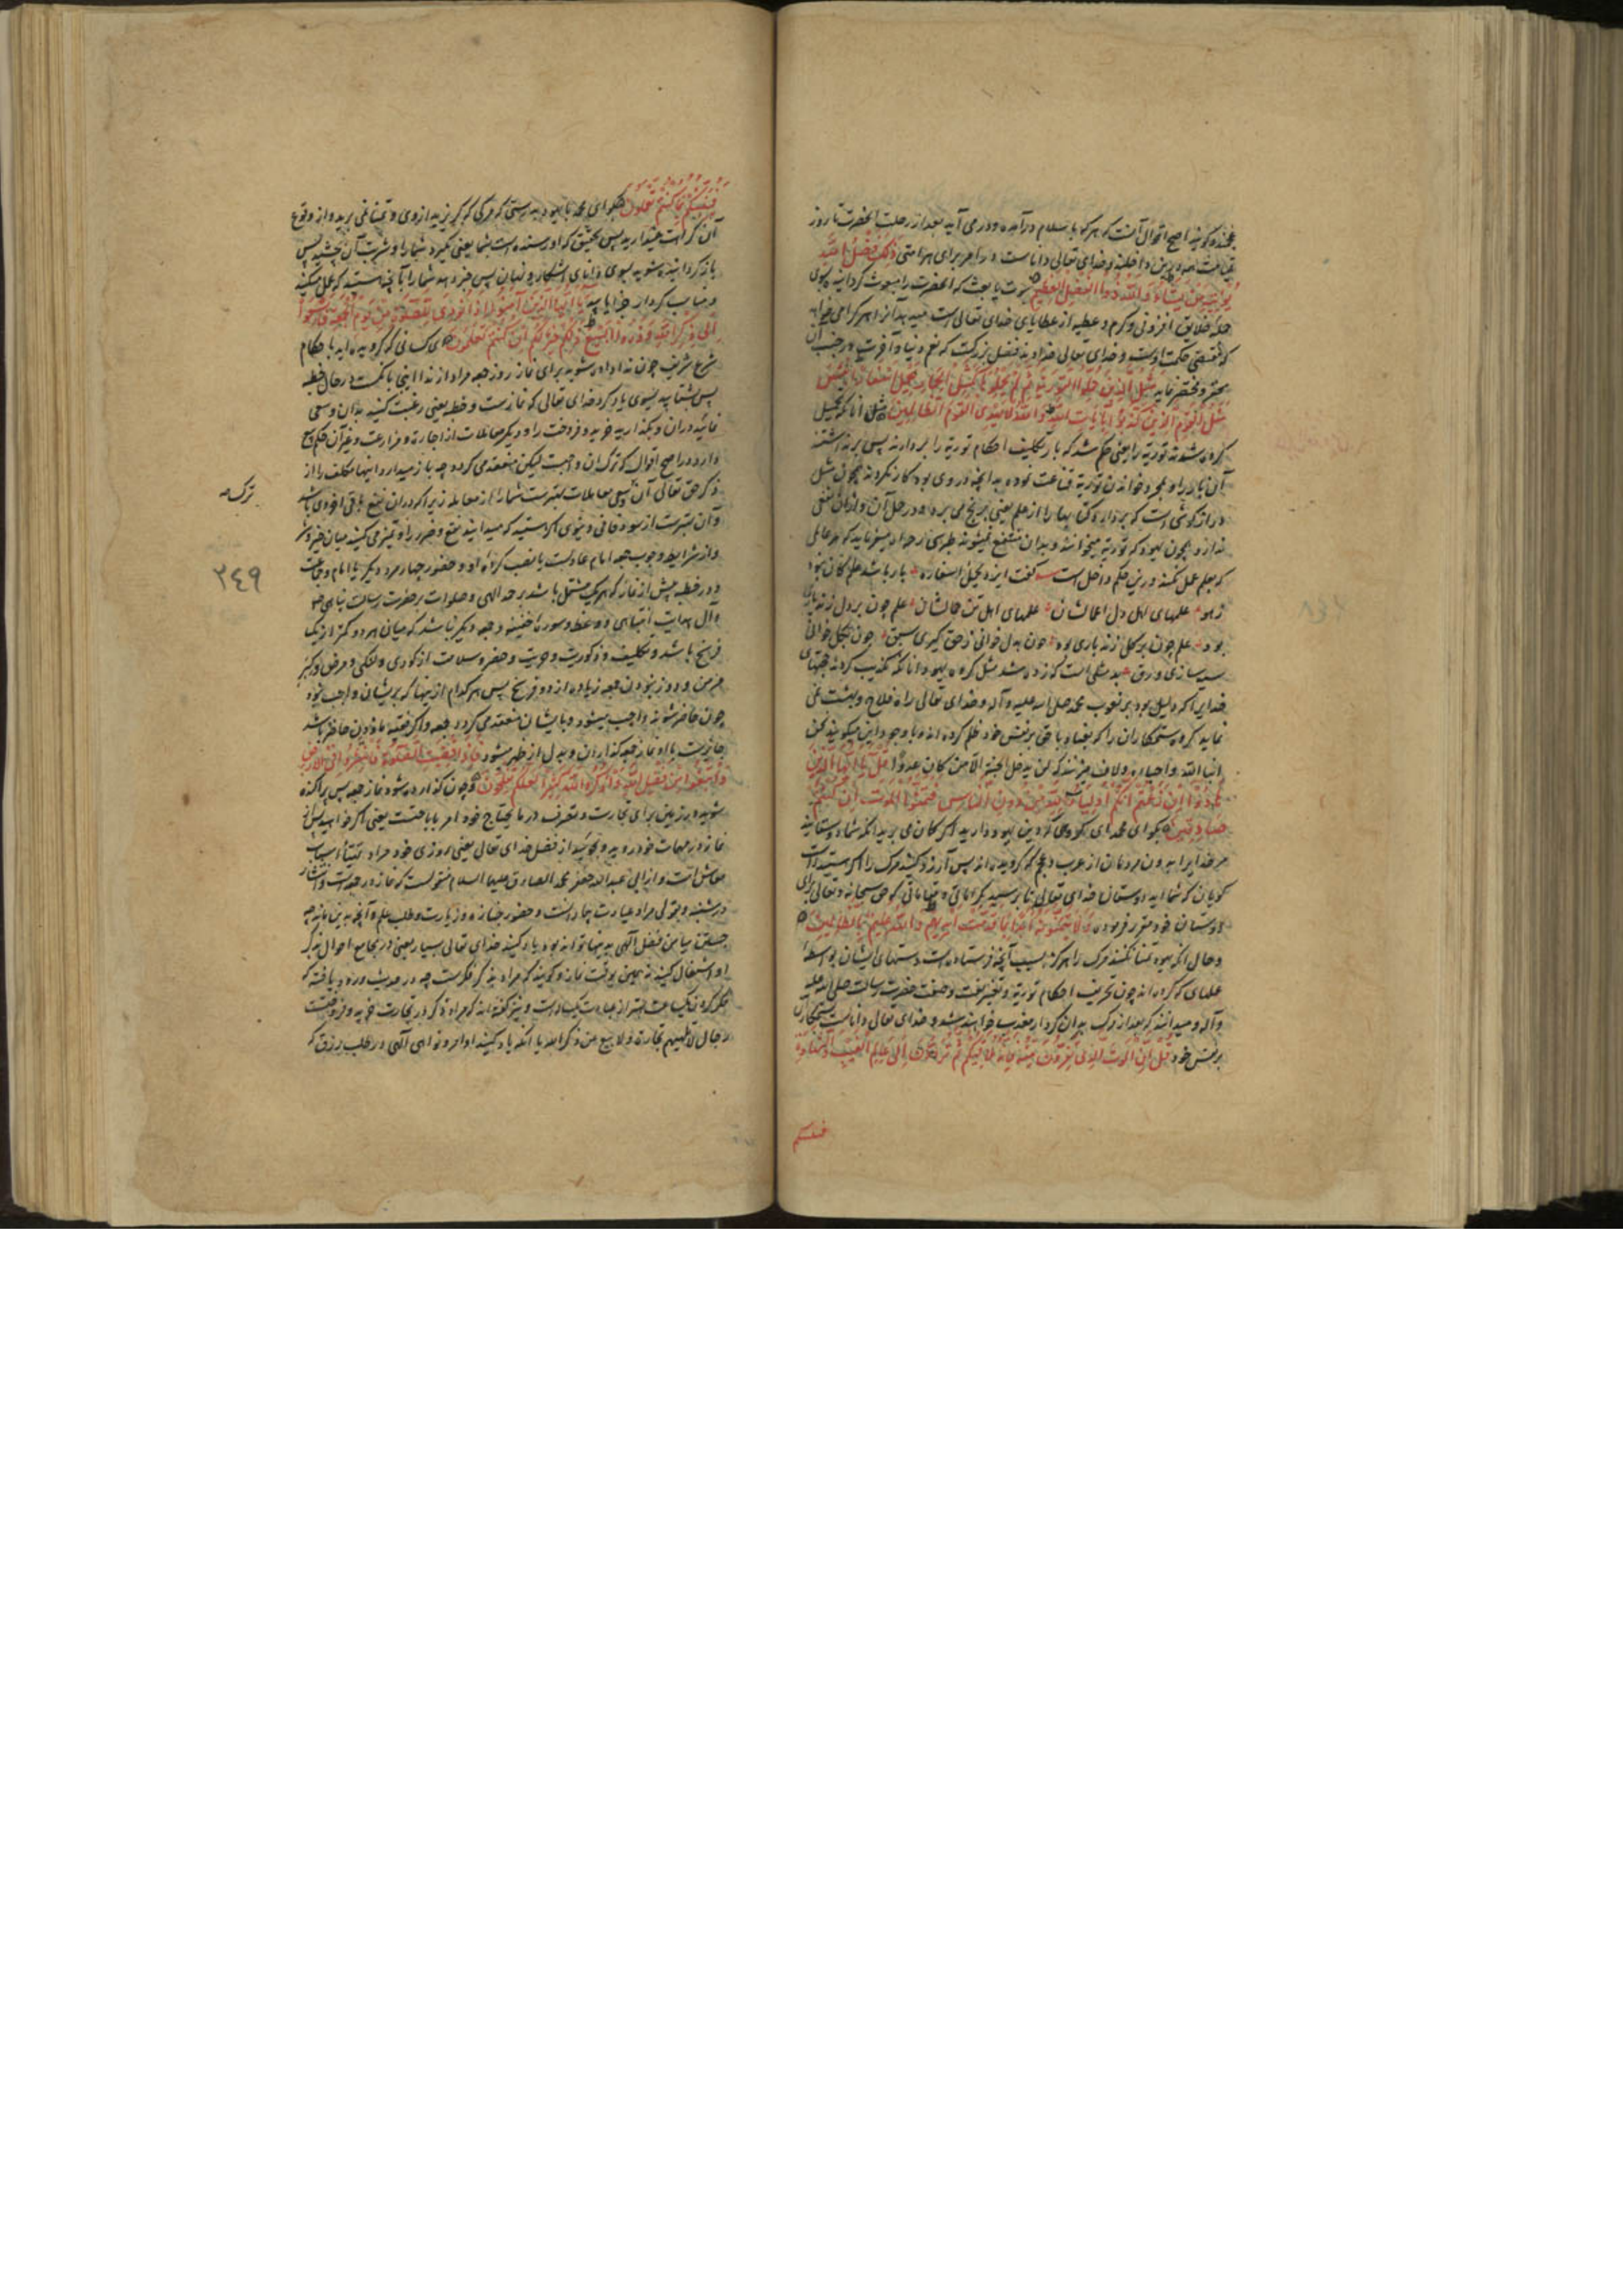 عجنده کویند اصح اقوال آنست که هر که باسلام درآمده و درمی آید بعد از رحلت آنحضرت تا روز
قیامت همه درین داخلند و خدای تعالی داناست و ذلک فضل الله
یؤتیه من یشاء والله ذو الفضل العظیم که آنحضرت را مبعوث کردانید بسوی
خلایق افزونی و کرم و عطیه از عطایای خدای تعالی است میدهد آنرا هر کرا می خواهد
که مقتضی حکمت اوست و خدای تعالی خداوند فضل بزرکست که نعم دنیا و آخرت در جنب آن
محقر و مختصر نماید مثل الذین حملوا التوریة ثم لم یحملوها کمثل الحمار یحمل اسفارا بئس
مثل القوم الذین کذبوا بآیات الله والله لا یهدی القوم الظالمین مثل آنانکه تحمیل
کرده شدند توریة را یعنی حکم شد که بار تکلیف احکام توریة را بردارند پس برنداشتند
آن بار را و بمجرد خواندن توریة قناعت نموده بدانچه در وی بود کار نکردند همچون مثل
دراز کوشی است که بردارد کتابها را از علم یعنی برنج می برد در حمل آن و از ان نفعی
ندارد همچون یهود که توریة میخوانند و بدان منتفع نمیشوند
که بعلم عمل نکند درین حکم داخل است کفت ایزد یحمل اسفاره بار باشد علم کان نبود
زهو علمهای اهل دل حمالشان علمهای اهل تن احمالشان علم چون بر دل زند یاری
بود علم چون بر کل زند باری بود چون بدل خوانی ز حق کیری سبق چون بکل خوانی
سیه سازی ورق بد مثلی است که زده شد مثل کروه یهود آنانکه تکذیب کردند حجتهای
خدایرا که دلیل بود بر نعوت محمد صلی الله علیه وآله و خدای تعالی راه فلاح و بهشت نمی
نماید کروه ستمکاران را که بعناد با حق بر نفس خود ظلم کرده اند و با وجود این میکویند نحن
ابناء الله و احباءه و لاف میزنند که لن یدخل الجنة الا من کان هودا قل یا ایها الذین
هادوا ان زعمتم انکم اولیاء لله من دون الناس فتمنوا الموت ان کنتم
صادقین بکو ای محمد ای کروهی که دین یهود دارید اکر کمان می برید آنکه شما دوستانید
مر خدایرا بدون مردمان از عرب و عجم که کرویده اند پس آرزو کنید مرک را اکر هستید راست
کویان که شمائید دوستان خدای تعالی تا برسید بکراماتی و مقاماتی که حق سبحانه و تعالی برای
دوستان خود مقرر فرموده ولا یتمنونه ابدا بما قدمت ایدیهم والله علیم بالظالمین
و حال آنکه یهود تمنا نکنند مرک را هرکز بسبب آنچه فرستاده است دستهای ایشان بواسطه
علمای که کرده اند چون تحریف احکام توریة و تغییر نعت و صفت حضرت رسالت صلی الله علیه
وآله و میدانند که بعد از مرک بدان کردار معذب خواهند شد و خدای تعالی داناست بستمکاران
بر نفس خود قل ان الموت الذی تفرون منه فانه ملاقیکم ثم تردون الی عالم الغیب والشهادة
فینبئکم
فینبئکم بما کنتم تعملون بکو ای محمد با یهود بدرستی که مرکی که کریزید از وی و تمنا نمی برید و از وقوع
آن کراهت میدارید پس بتحقیق که او رسنده است بشما یعنی بکیرد شما را و شربت آن بچشید پس
باز کردانیده شوید بسوی دانای آشکار و نهان پس خبر دهد شما را بآنچه هستید که عمل میکنید
و مناسب کردار جزا یابید یا ایها الذین آمنوا اذا نودی للصلوة من یوم الجمعة فاسعوا
الی ذکر الله وذروا البیع ذلکم خیر لکم ان کنتم تعلمون ای کسانی که کرویده اید باحکام
شرع شریف چون ندا داده شوید برای نماز روز جمعه مراد از ندا اینجا بانکست در حال خطبه
پس بشتابید بسوی یاد کرد خدای تعالی که نمازست و خطبه یعنی رغبت کنید بدان و سعی
نمائید در ان و بکذارید خرید و فروخت را و دیکر معاملات از اجاره و مزارعت و غیر آن حکم بیع
دارد و در اصح اقوال که ترک ان واجبست لیکن منعقد می کردد چه باز میدارد اینها مکلف را از
ذکر حق تعالی آن سعی معاملات بهترست شما را از معامله زیرا که در ان نفع باقی اخروی باشد
و آن بهترست از سود فانی دنیوی اکر هستید که میدانید نفع و ضرر را و تمیز می کنید میان خیر و شر
و از شرایط وجوب جمعه امام عادلست یا نصب کرده او و حضور چهار مرد دیکر با امام و جماعت
و دو خطبه پیش از نماز که هر یک مشتمل باشد بر حمد الهی و صلوات بر حضرت رسالت پناهی صلع
و آل هدایت انتباهی و وعظ و سوره خفیفه و جمعه دیکر نباشد که میان هر دو کمتر از یک
فرسخ باشد و تکلیف و ذکوریت و حریت و حضر و سلامت از کوری و لنکی و مرض و کبر
مزمن و دور نبودن جمعه زیاده از دو فرسخ پس هر کدام از اینها که بر ایشان واجب نبود
چون حاضر شوند واجب میشود و بایشان منعقد می کردد جمعه و اکر فقیه ماذون حاضر باشد
جایزست با او نماز جمعه کذاردن و بدل از ظهر میشود فاذا قضیت الصلوة فانتشروا فی الارض
وابتغوا من فضل الله واذکروا الله کثیرا لعلکم تفلحون و چون کذارده شود نماز جمعه پس پراکنده
شوید در زمین برای تجارت و تصرف در ما یحتاج خود امر باباحتست یعنی اکر خواهید پس از
نماز در مهمات خود روید و بجوئید از فضل خدای تعالی یعنی روزی خود مراد اسباب
معاش است و از ابی عبدالله جعفر بن محمد الصادق علیهما السلام منقولست که نماز در جمعه است و انتشار
در شنبه و بقولی مراد عیادت بیمارانست و حضور جنازه و زیارت و طلب علم و آنچه بدین ماند چه
جستن میامن فضل الهی بدینها توان بود و یاد کنید خدای تعالی بسیار یعنی در مجامع احوال بذکر
او اشتغال کنید نه همین بوقت نماز و کویند که مراد بذکر فکرست چه در حدیث ورود یافته که
فکر کردن یکساعت بهتر از عبادت یکسالست و نیز کفته اند که مراد ذکر در تجارت خرید و فروختست
رجال لا تلهیهم تجارة ولا بیع عن ذکر الله یا آنکه یاد کنید اوامر و نواهی الهی در طلب رزق که
ترک
٢٤٩